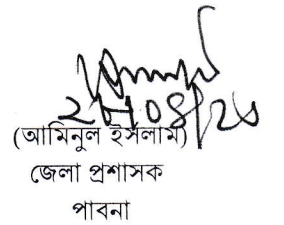 (আমিনুল ইসলাম)
জেলা প্রশাসক
পাবনা